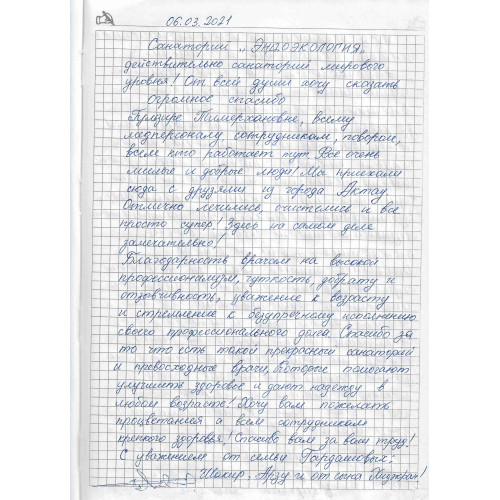 06.03.2021
Санаторий „ЭНДОЭКОЛОГИЯ"
действительно санаторий мирового
уровня! От всей души хочу сказать
огромное спасибо
Гулзире Тимерхановне, всему
медперсоналу сотрудникам, поворам,
всем кто работает тут. Все очень
милые и добрые люди! Мы приехали
сюда с друзьями из города Актау.
Отлично лечились, очистились и все
просто супер! Здесь на самом деле
замечательно!
Благодарность врачам на высокой
профессионализм, чуткость, доброту и
отзывчивость, уважение к возрасту
и стремление к безупречному исполнению
своего профессионального долга. Спасибо за
то что есть такой прекрасный санаторий
и превосходные врачи, которые помогают
улучшить здоровье и дают надежду в
любом возрасте! Хочу вам пожелать
процветания а всем сотрудникам
крепкого здоровья! Спасибо вам за ваш труд!
С уважением от семьи
Шакир, Арзу и от сына